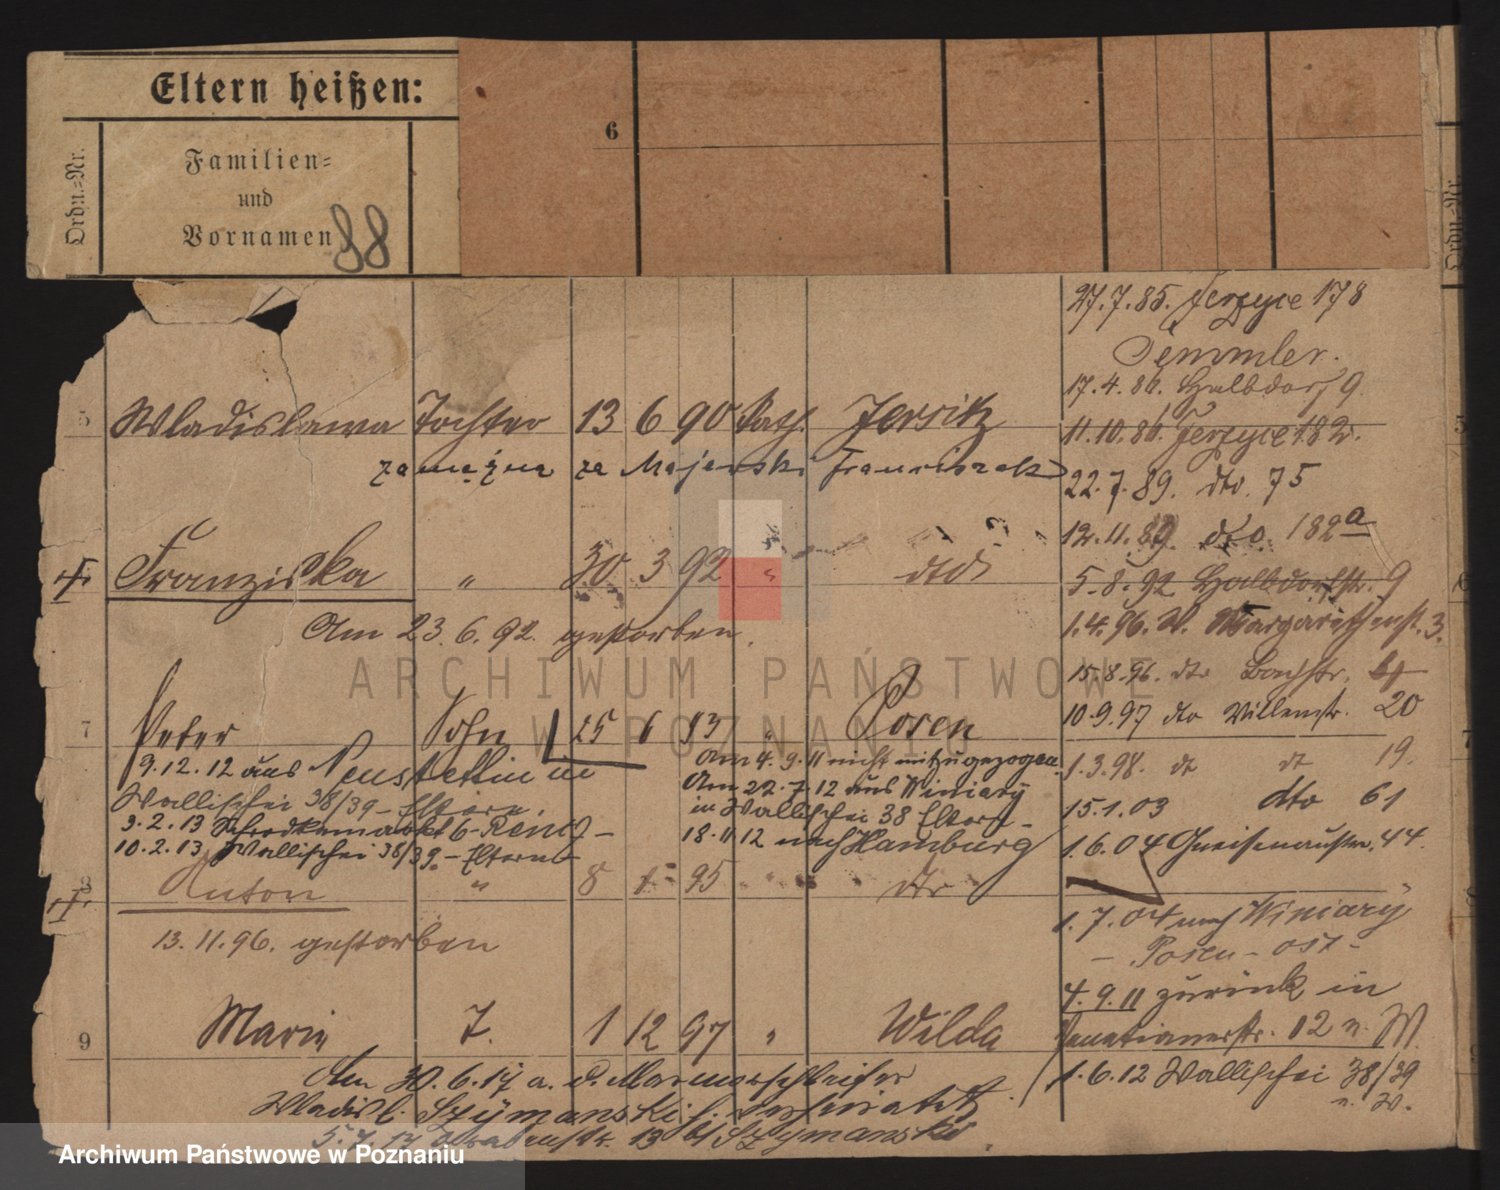 Eltern heißen:
Ordn.-Nr.
Familien-
und
Vornamen
88
6
Ordn.-Nr.
27.7.85. Jerzyce 178
Semmler.
17.4.86. Halbdorf 9
5 Wladislawa Tochter 13 6 90 Kath. Jersitz
11.10.86. Jerzyce 182.
zamężna za Majewski Franciszek
22.7.89. dto. 75
12.11.89. dto. 182a
Franziska " 30 3 92 " dto
5.8.92 Halbdorfstr. 9
Am 23.6.92. gestorben.
1.4.96. W. Margarethenst. 3.
15.8.96. dto Bachstr.
7 Peter Sohn 25 6 83 " Posen
10.9.97 dto Villenstr. 20
9.12.12 aus Neustettin in
Am 4.9.11 nicht mitzugezogen.
1.3.98. dt dt 19.
Wallischei 38/39 - Eltern.
Am 22.7.12 aus Winiary
in Wallischei 38 Eltern -
15.1.03 dto 61
3.2.13 Schrodkamarkt 6 -
18.11.12 nach Hamburg
10.2.13 Wallischei 38/39 - Eltern
1.6.04 Gneisenaustr. 44.
8 Anton " 8 1 95 " dto
1.7.04 nach Winiary
13.11.96. gestorben
- Posen - Ost -
4.9.11 zurück in
9 Marie T. 1 12 97 " Wilda
Venetianerstr. 12 n. W.
Am 30.6.17 a. d. Marmorschleifer
1.6.12 Wallischei 38/39
n. W.
Wladisl. Szymanski verheiratet
5.7.17 13 b/ Szymanski
Archiwum Państwowe w Poznaniu
ARCHIWUM PAŃSTWOWE
W POZNANIU